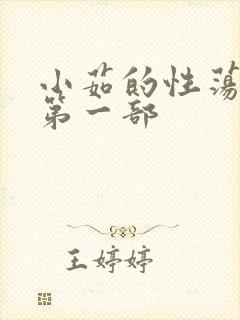 小茹的性荡
第一部
王婷婷